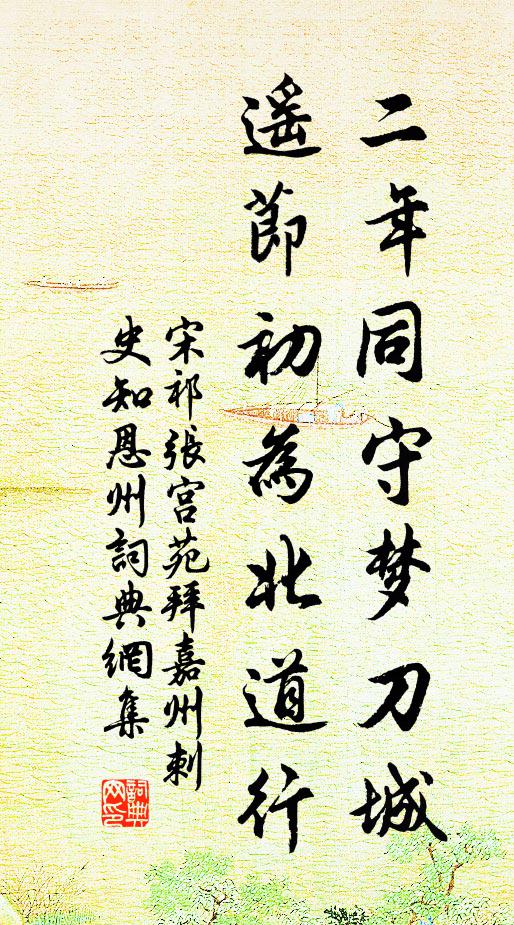 二年同守梦刀城
遥節初為北道行
宋祁張宫苑拜嘉州刺
史知恩州詞典網集
詞典
网印